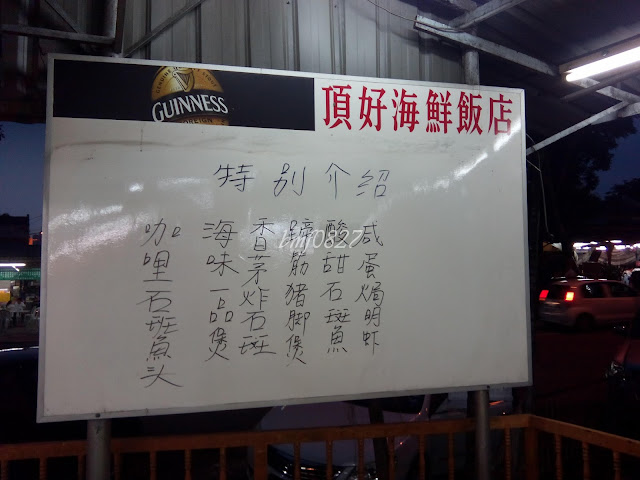 GUINNESS
頂好海鮮飯店
特别介绍
咸蛋焗明虾
酸甜石斑魚
蹄筋猪脚煲
香茅炸石斑
海味一品煲
咖哩石斑魚头